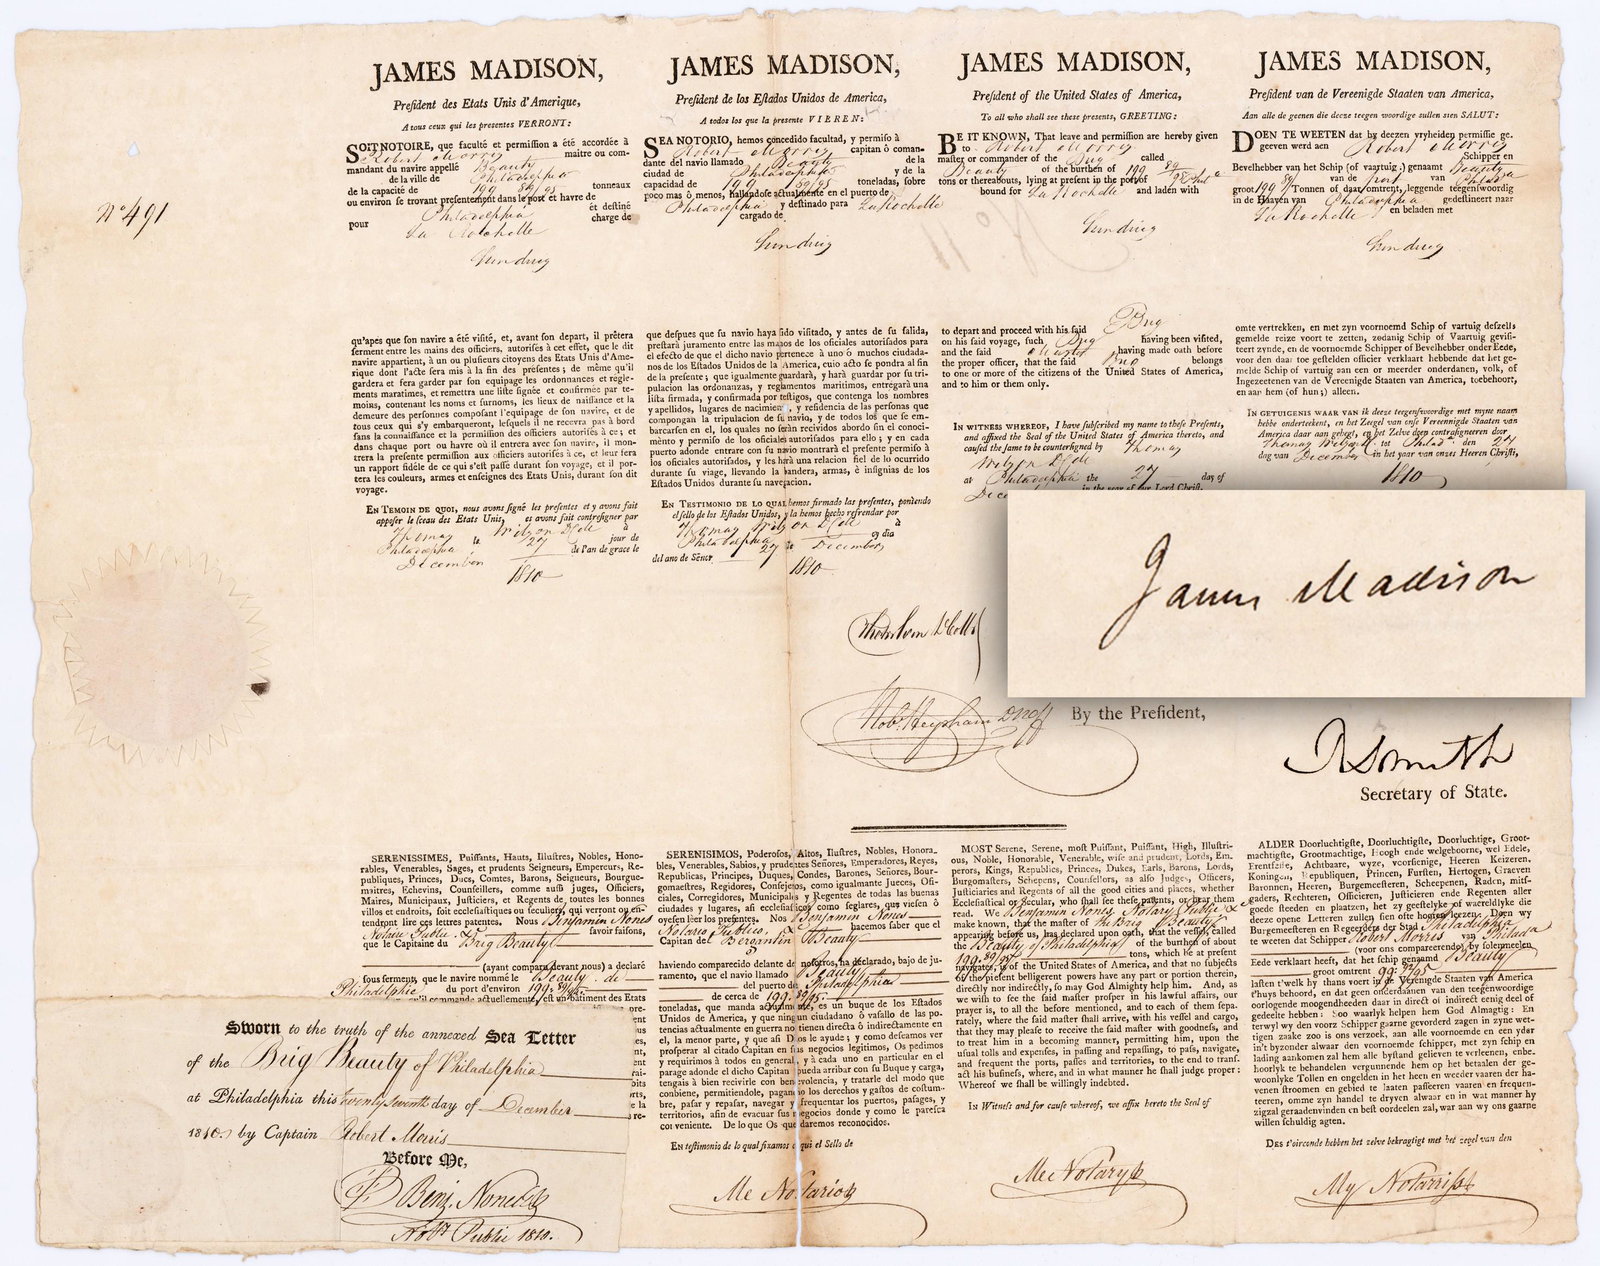 No 491
JAMES MADISON,
President des Etats Unis d'Amerique,
A tous ceux qui les presentes VERRONT:
SOIT NOTOIRE, que faculté et permission a été accordée à
Robert Morris maitre ou com-
mandant du navire appellé Beauty
de la ville de Philadelphia
de la capacité de 199 89/95 tonneaux
ou environ se trovant presentement dans le port et havre de
Philadelphia et destiné
pour La Rochelle charge de
Sundries
qu'apes que son navire a été visité, et, avant son depart, il prêtera
serment entre les mains des officiers, autorisés à cet effet, que le dit
navire appartient, à un ou plusieurs citoyens des Etats Unis d'Ame-
rique dont l'acte sera mis à la fin des présentes; de même qu'il
gardera et fera garder par son equipage les ordonnances et régle-
ments maratimes, et remettra une liste signée et confirmée par te-
moins, contenant les noms et surnoms, les lieux de naissance et la
demeure des personnes composant l'equipage de son navire, et de
tous ceux qui s'y embarqueront, lesquels il ne recevra pas à bord
sans la connaissance et la permission des officiers autorisés à ce; et
dans chaque port ou havre où il entrera avec son navire, il mon-
trera la presente permission aux officiers autorisés à ce, et leur fera
un rapport fidéle de ce qui s'est passé durant son voyage, et il por-
tera les couleurs, armes et enseignes des Etats Unis, durant son dit
voyage.
EN TEMOIN DE QUOI, nous avons signé les presentes et y avons fait
apposer le sceau des Etats Unis, et avons fait contresigner par
Thomas à
Philadelphia le 27 jour de
December de l'an de grace le
1810
JAMES MADISON,
President de los Estados Unidos de America,
A todos los que la presente VIEREN:
SEA NOTORIO, hemos concedido facultad, y permiso à
Robert Morris capitan ô coman-
dante del navio llamado Beauty de la
ciudad de Philadelphia y de la
capacidad de 199 89/95 toneladas, sobre
poco mas ô menos, hallandose actualmente en el puerto de
Philadelphia y destinado para La Rochelle
cargado de
Sundries
que despues que su navio haya sido visitado, y antes de su salida,
prestará juramento entre las manos de los oficiales autorisados para
el efecto de que el dicho navio pertenece à uno ó muchos ciudada-
nos de los Estados Unidos de la America, cuio acto se pondra al fin
de la presente; que igualmente guardará, y hará guardar por su tri-
pulacion las ordonanzas, y reglamentos maritimos, entregará una
lista firmada, y confirmada por testigos, que contenga los nombres
y apellidos, lugares de nacimiento, y residencia de las personas que
compongan la tripulacion de su navio, y de todos los que se em-
barcasen en el, los quales no serán recividos abordo sin el conoci-
mento y permiso de los oficiales autorisados para ello; y en cada
puerto adonde entrare con su navio montrará el presente permiso à
los oficiales autorisados, y les hará una relacion fiel de lo ocurrido
durante su viage, llevando la bandera, armas, è insignias de los
Estados Unidos durante su navegacion.
EN TESTIMONIO DE LO QUAL hemos firmado las presentes, poniendo
el sello de los Estados Unidos, y la hemos hecho refrendar por
Thomas à
Philadelphia 27 de December el dia
del ano de Señor 1810
JAMES MADISON,
President of the United States of America,
To all who shall see these presents, GREETING:
BE IT KNOWN, That leave and permission are hereby given
to Robert Morris
master or commander of the Brig called
Beauty of the burthen of 199 89
tons or thereabouts, lying at present in the port of
bound for La Rochelle and laden with
Sundries
to depart and proceed with his said Brig
on his said voyage, such Brig having been visited,
and the said Master having made oath before
the proper officer, that the said Brig belongs
to one or more of the citizens of the United States of America,
and to him or them only.
IN WITNESS WHEREOF, I have subscribed my name to these Presents,
and affixed the Seal of the United States of America thereto, and
caused the same to be countersigned by Thomas
at Philadelphia the 27 day of
in the year of our Lord Christ,
JAMES MADISON,
President van de Vereenigde Staaten van America,
Aan alle de geenen die deeze teegen woordige zullen sien SALUT:
DOEN TE WEETEN dat by deezen vryheiden permissie ge-
geeven werd aen Robert Morris
Schipper en
Bevelhebber van het Schip (of vaartuig) genaamt Beauty
van de Port van Philada
groot 199 89 Tonnen of daar omtrent, leggende teegenswoordig
in de Haaven van Philadelphia gedestineert naar
La Rochelle en beladen met
Sundries
omte vertrekken, en met zyn voornoemd Schip of vartuig deszells
gemelde reize voort te zetten, zodanig Schip of Vaartuig gevisi-
teert zynde, en de voornoemde Schipper of Bevelhebber onder Eede,
voor den daar toe gestelden officier verklaart hebbende dat het ge-
melde Schip of vartuig aan een or meerder onderdanen, volk, of
Ingezeetenen van de Vereenigde Staaten van America, toebehoort,
en aan hem (of hun;) alleen.
IN GETUIGENIS WAAR VAN ik deeze teegenswoordige met myne naam
hebbe onderteekent, en het Zeegel van onse Vereenigde Staaten van
America daar aan gehegt, en het Zelve doen contrasigneeren door
tot Philada den 27
dag van December in het jaar van onzes Heeren Christi,
1810
James Madison
By the President,
R Smith
Secretary of State.
SERENISSIMES, Puissants, Hauts, Illustres, Nobles, Hono-
rables, Venerables, Sages, et prudents Seigneurs, Empereurs, Re-
publiques, Princes, Ducs, Comtes, Barons, Seigneurs, Bourgue-
maitres, Echevins, Counseillers, comme aussi Juges, Officiers,
Maires, Municipaux, Justiciers, et Regents de toutes les bonnes
villes et endroits, soit ecclesiastiques ou seculiers, qui verront ou en-
tendront lire ces lettres patentes. Nous Benjamin Nones
Notaire Public &c savoir faisons,
que le Capitaine du Brig Beauty
(ayant comparu devant nous) a declaré
sous serment, que le navire nommé le Beauty de
Philadelphie du port d'environ 199 89/95
qu'il commande actuellement, est un bâtiment des Etats
SERENISIMOS, Poderosos, Altos, Ilustres, Nobles, Honora-
bles, Venerables, Sabios, y prudentes Señores, Emperadores, Reyes,
Republicas, Principes, Duques, Condes, Barones, Señores, Bour-
gomaestres, Regidores, Consejeros, como igualmente Jueces, Ofi-
ciales, Corregidores, Municipales y Regentes de todas las buenas
ciudades y lugares, asi ecclesiasticos como seglares, que viesen ô
oyesen léer los presentes. Nos Benjamin Nones
Notario Publico, &c hacemos saber que el
Capitan del Bergantin Beauty
haviendo comparecido delante de nosotros, ha declarado, bajo de ju-
ramento, que el navio llamado Beauty
del puerto de Philadelphia
de cerca de 199 89/95
toneladas, que manda actualmente, es un buque de los Estados
Unidos de America, y que ningun ciudadano ô vasallo de las po-
tencias actualmente en guerra no tienen directa ô indirectamente en
el, la menor parte, y que asi Dios le ayude; y como deseamos ver
prosperar al citado Capitan en sus negocios legitimos, Os pedimos
y requirimos à todos en general, y à cada uno en particular en el
parage adonde el dicho Capitan pueda arribar con su Buque y carga,
tengais à bien recivirle con benevolencia, y tratarle del modo que
conbiene, permitiendole, pagando los derechos y gastos de costum-
bre, pasar y repasar, navegar y frequentar los puertos, pasages, y
territorios, afin de evacuar sus negocios donde y como le paresca
conveniente. De lo que Os quedaremos reconocidos.
En testimonio de lo qual fixamos aqui el Sello de
Me Notario
MOST Serene, Serene, most Puissant, Puissant, High, Illustri-
ous, Noble, Honorable, Venerable, wise and prudent, Lords, Em-
perors, Kings, Republics, Princes, Dukes, Earls, Barons, Lords,
Burgomasters, Schepens, Counsellors, as also Judges, Officers,
Justiciaries and Regents of all the good cities and places, whether
Ecclesiastical or secular, who shall see these patents, or hear them
read. We Benjamin Nones Notary Public &c
make known, that the master of the Brig Beauty
appearing before us, has declared upon oath, that the vessel, called
the Beauty of Philadelphia of the burthen of about
199 89/95 tons, which he at present
navigates, is of the United States of America, and that no subjects
of the present belligerent powers have any part or portion therein,
directly nor indirectly, so may God Almighty help him. And, as
we wish to see the said master prosper in his lawful affairs, our
prayer is, to all the before mentioned, and to each of them sepa-
rately, where the said master shall arrive, with his vessel and cargo,
that they may please to receive the said master with goodness, and
to treat him in a becoming manner, permitting him, upon the
usual tolls and expenses, in passing and repassing, to pass, navigate,
and frequent the ports, passes and territories, to the end to trans-
act his business, where, and in what manner he shall judge proper:
Whereof we shall be willingly indebted.
In Witness and for cause whereof, we affix hereto the Seal of
Me Notary
ALDER Doorluchtigste, Doorluchtigste, Doorluchtige, Groot-
machtigste, Grootmachtige, Hoogh ende welgeboorne, wel Edele,
Erentfeste, Achtbaare, wyze, voorsienige, Heeren Keizeren,
Koningen, Republiquen, Princen, Fursten, Hertogen, Graeven
Baronnen, Heeren, Burgemeesteren, Schepenen, Raden, mits-
gaders, Rechteren, Officieren, Justicieren ende Regenten aller
goede steeden en plaatzen, het zy geestelyke of waereldlyke die
deeze opene Letteren zullen sien ofte hooren lezen. Doen wy
Burgemeesteren en Regeerders der Stad Philadelphia
te weeten dat Schipper Robert Morris van Philada
(voor ons compareerende) by solemneelen
Eede verklaart heeft, dat het schip genaamd Beauty
groot omtrent 99 89/95
lasten t'welk hy thans voert in de Verengde Staaten van America
t'huys behoord, en dat geen onderdaanen van de teegenwoordige
oorlogende moogendheden daar in direct of indirect eenig deel of
gedeelte hebben: Soo waarlyk helpen hem God Almagtig: En
terwyl wy den voorz Schipper gaarne gevorderd zagen in zyne wet-
tigen zaake zoo is ons verzoek, aan alle voornoemde en een yder
in't byzonder alwaar den voornoemde schipper, met zyn schip en
lading aankomen zal hem alle bystand gelieven te verleenen, enbe-
hoorlyk te behandelen vergunnende hem op het betaalen der ge-
woonlyke Tollen en ongelden in het heen en weeder vaaren der ha-
venen stroomen en gebied te laaten passeeren vaaren en frequen-
teeren, omme zyn handel te dryven alwaar en in wat manner hy
zigzal geraadenvinden en best oordeelen zal, war aan wy ons gaarne
willen schuldig agten.
Des t'oirconde hebben het zelve bekragtigt met het zegel van den
My Notariss
Sworn to the truth of the annexed Sea Letter
of the Brig Beauty of Philadelphia
at Philadelphia this twenty seventh day of December
1810. by Captain Robert Morris
Before Me,
Benj. Nones
Public 1810.